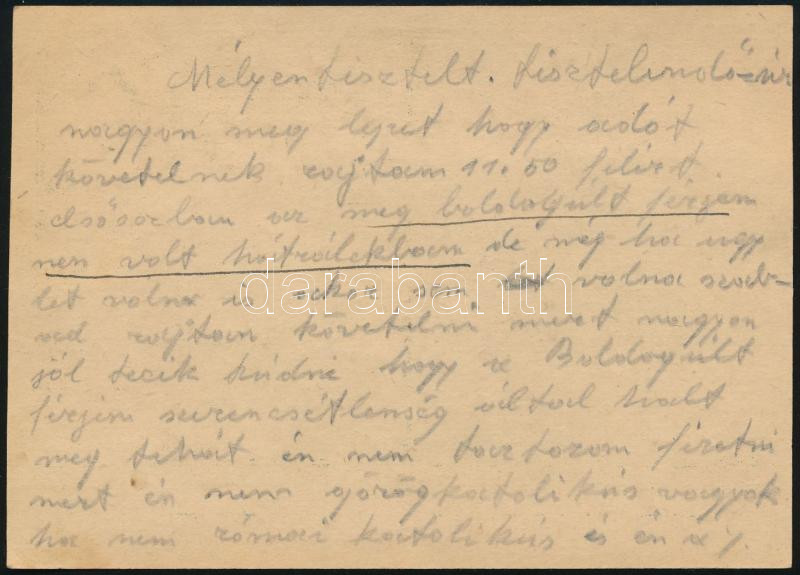 Mélyen tisztelt. tisztelendő-úr
nagyon meg lepet hogy adót
követelnek rajtam 11.50 filírt.
elsősorban az meg boldogúlt férjem
nem volt hátrálékban de még ha ugy
let volna is akor sem volna szab-
ad rajtam követelni mert nagyon
jól teczik túdni hogy a Boldogúlt
férjem serencsétlenség által halt
meg tehát én nem tartozom fizetni
mert én nem görögkatolikús vagyok
ha nem római katolikús és én a
darabanth